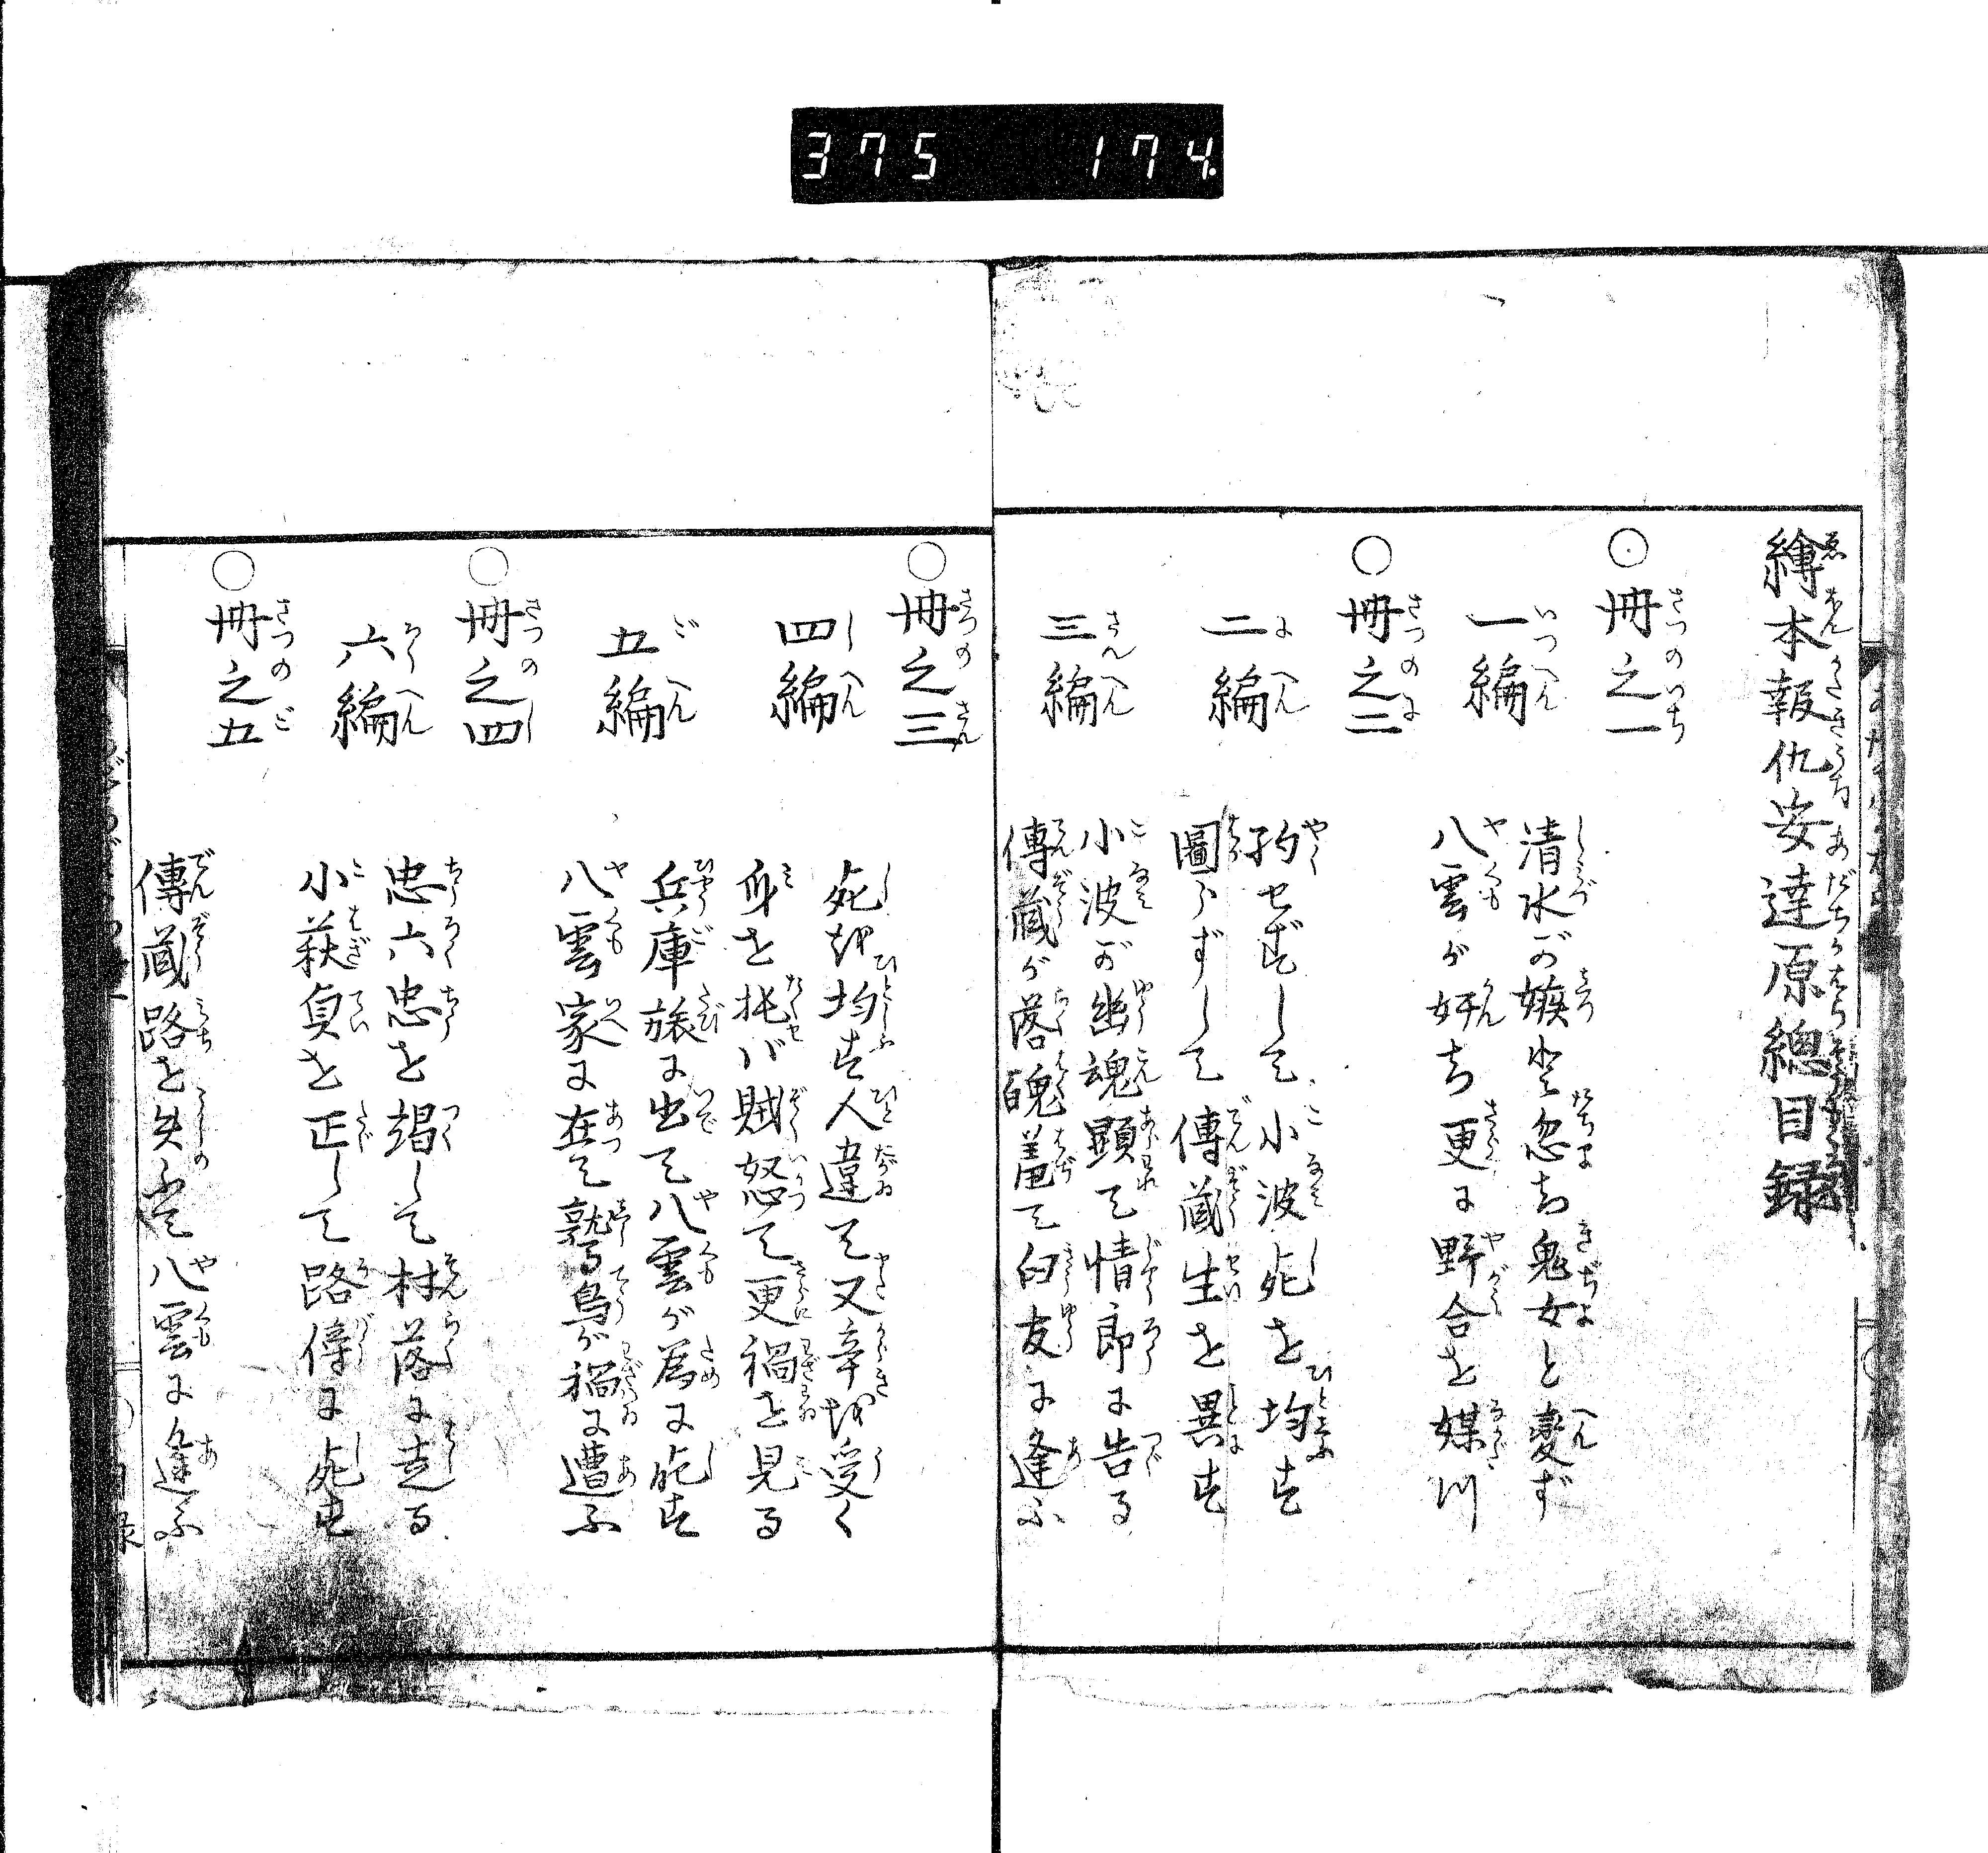 375 174
繪本報仇安達原總目録
○冊之一
一編
清水が嫉妬忽ち鬼女と變ず
八雲が奸ち更に野合を媒川
○冊之二
二編
約せずして小波死を均す
圖らずして傳藏生を異す
三編
小波が幽魂顕て情郎に告る
傳藏が落魄羞て旧友に逢ふ
○冊之三
四編
死を均す人違て又辛を受く
身を托ば賊怒て更禍を見る
五編
兵庫旅に出て八雲が為に死す
八雲家に在て鷙鳥が禍に遭ふ
○冊之四
六編
忠六忠を竭して村落に走る
小萩貞を正して路傍に死す
○冊之五
傳藏路を失ふて八雲に逢ふ